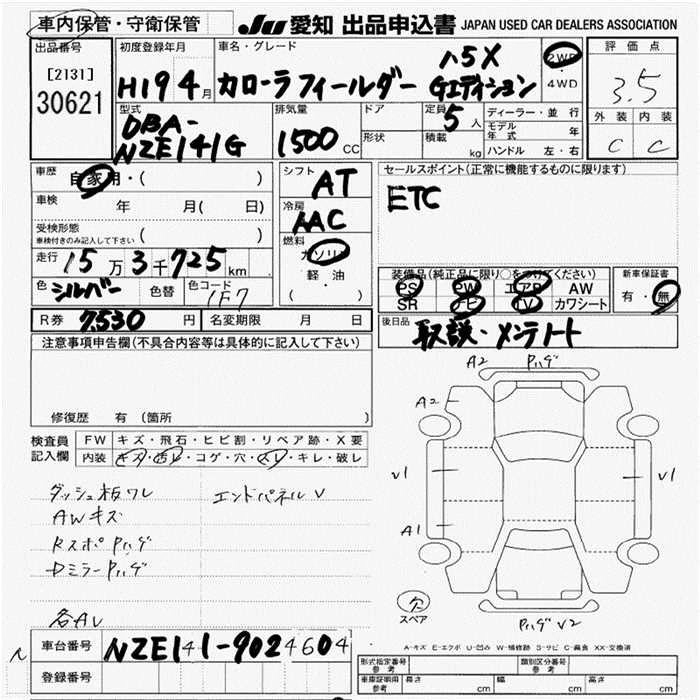 車内保管・守衛保管
JU 愛知 出品申込書 JAPAN USED CAR DEALERS ASSOCIATION
出品番号
[2131]
30621
初度登録年月
H19 4月
車名・グレード
カローラフィールダー 1.5X Gエディション
2WD
・
4WD
評価点
3.5
外装 内装
C C
型式
DBA-
NZE141G
排気量
1500 CC
ドア
形状
定員 5人
積載 kg
ディーラー・並行
モデル年式 年
ハンドル 左・右
車歴
自家用・( )
車検 年 月( 日)
受検形態
車検付きのみ記入して下さい ( )
走行 15万3千725km
色 シルバー 色替 色コード 1F7
シフト AT
冷房 AAC
燃料
ガソリン
軽油
( )
セールスポイント(正常に機能するものに限ります)
ETC
装備品(純正品に限り○をつけてください)
PS PW エアB AW
SR ナビ TV カワシート
新車保証書
有・無
後日品 取説・メンテノート
R券 7,530円 名変期限 月 日
注意事項申告欄(不具合内容等は具体的に記入して下さい)
修復歴 有 (箇所
検査員
記入欄
FW キズ・飛石・ヒビ割・リペア跡・X要
内装 キズ・汚レ・コゲ・穴・スレ・キレ・破レ
ダッシュ板ワレ エンドパネルV
AWキズ
RスポPハゲ
DミラーPハゲ
各AU
A2 Pハゲ
A2
V1 V1
A1
欠
スペア
Pハゲ V2
A-キズ E-エクボ U-凹み W-補修跡 S-サビ C-腐食 XX-交換済
車台番号 NZE141-9024604
登録番号
形式指定番号
参考
類別区分番号
参考
車庫証明用
参考
長さ cm 幅 cm 高さ cm